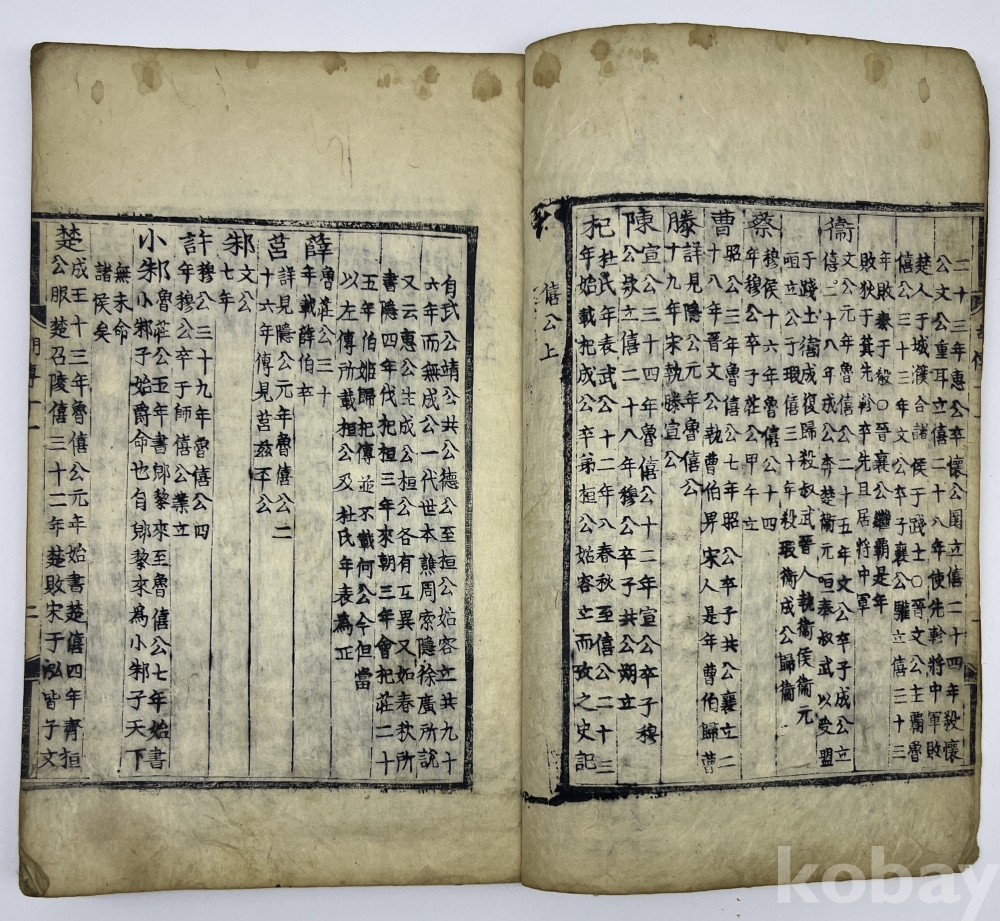 二十三年惠公卒懷公圉立僖二十四年殺懷
公文公重耳立僖二十八年使先軫將中軍敗
楚人于城濮合諸侯于踐土〇晉文公主霸魯
僖公三十三年文公卒子襄公驩立僖三十三
年敗秦于殽〇晉襄公繼霸是年
敗狄于箕先軫卒先且居將中軍
衞
文公元年魯僖公二十五年文公卒子成公立
僖二十八年成公奔楚衞元咺奉叔武以受盟
于踐土衞成復歸殺叔武晉人執衞侯衞元
咺立公子瑕僖三十年殺瑕衞成公歸衞
蔡
穆侯十六年魯僖公十四
年穆公卒子莊公甲午立
曹
昭公三年魯莊公七年昭公卒子共公襄立二
十八年晉文公執曹伯畀宋人是年曹伯歸曹
滕
詳見隱公元年魯僖公
十九年宋執滕宣公
陳
宣公三十四年魯僖公十二年宣公卒子穆
公款立僖二十八年穆公卒子共公朔立
杞
杜氏年表武公十二年八春秋至僖公二十三
年始載杞成公卒弟桓公姑容立而攷之史記
僖公上
自武公靖公共公德公至桓公姑容立共九十
六年而無成公一代世本譙周索隱徐廣所説
又云惠公生成公桓公各有互異又如春秋所
書隱四年伐杞桓三年來朝三年會杞莊二十
五年伯姬歸杞傳並不載何公今但當
以左傳所載桓公及杜氏年表為正
薛
魯莊公三十
年載薛伯卒
莒
詳見隱公元年魯僖公二
十六年傳見莒兹丕公
邾
文公
七年
許
穆公三十九年魯僖公四
年穆公卒于師僖公業立
小邾
魯莊公五年書郳黎來至魯僖公七年始書
小邾子始爵命也自郳黎來為小邾子天下
無未命
諸侯矣
楚
成王十三年魯僖公元年始書楚僖四年齊桓
公服楚召陵僖三十二年楚敗宋于泓皆子文
二
kobay